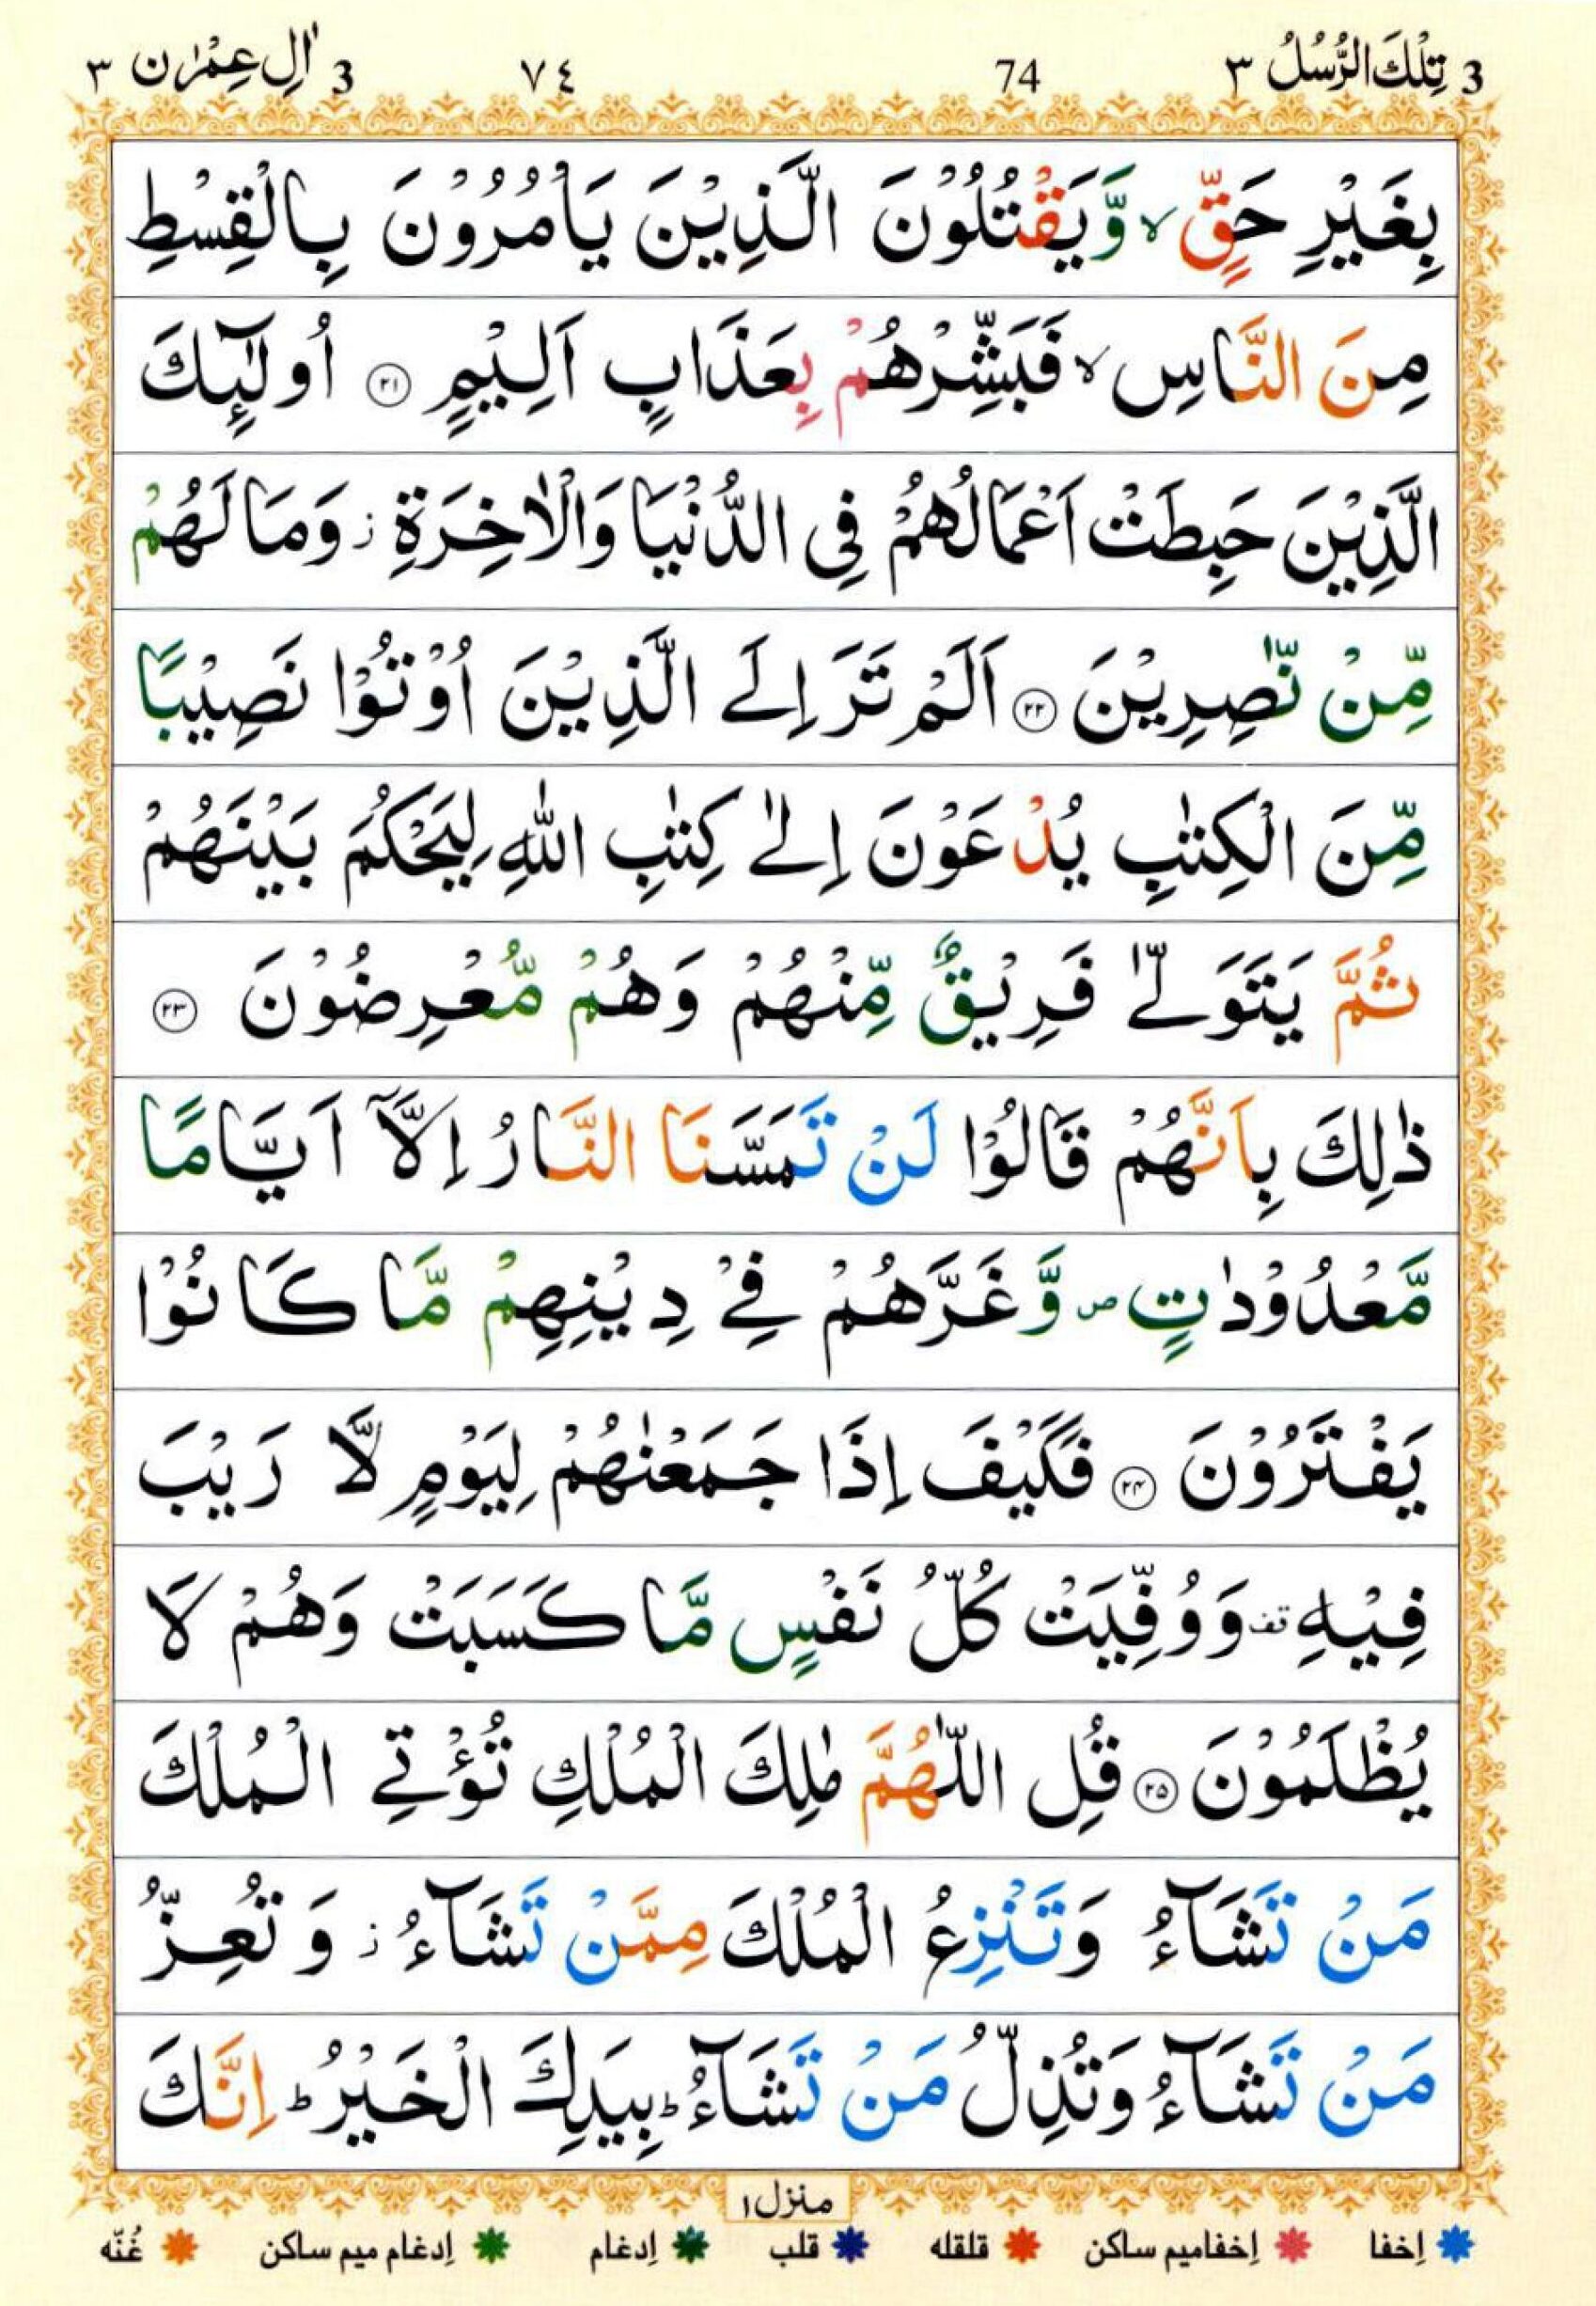 3 تِلْكَ الرُّسُلُ ٣ 74 ٧٤ 3 اٰلِ عِمْرٰن ٣
بِغَيْرِ حَقٍّ ۙ وَّيَقْتُلُوْنَ الَّذِيْنَ يَاْمُرُوْنَ بِالْقِسْطِ
مِنَ النَّاسِ ۙ فَبَشِّرْهُمْ بِعَذَابٍ اَلِيْمٍ ۝۲۱ اُولٰٓئِكَ
الَّذِيْنَ حَبِطَتْ اَعْمَالُهُمْ فِي الدُّنْيَا وَالْاٰخِرَةِ ز وَمَا لَهُمْ
مِّنْ نّٰصِرِيْنَ ۝۲۲ اَلَمْ تَرَ اِلَى الَّذِيْنَ اُوْتُوْا نَصِيْبًا
مِّنَ الْكِتٰبِ يُدْعَوْنَ اِلٰى كِتٰبِ اللّٰهِ لِيَحْكُمَ بَيْنَهُمْ
ثُمَّ يَتَوَلّٰى فَرِيْقٌ مِّنْهُمْ وَهُمْ مُّعْرِضُوْنَ ۝۲۳
ذٰلِكَ بِاَنَّهُمْ قَالُوْا لَنْ تَمَسَّنَا النَّارُ اِلَّآ اَيَّامًا
مَّعْدُوْدٰتٍ ص وَّغَرَّهُمْ فِيْ دِيْنِهِمْ مَّا كَانُوْا
يَفْتَرُوْنَ ۝۲۴ فَكَيْفَ اِذَا جَمَعْنٰهُمْ لِيَوْمٍ لَّا رَيْبَ
فِيْهِ قف وَوُفِّيَتْ كُلُّ نَفْسٍ مَّا كَسَبَتْ وَهُمْ لَا
يُظْلَمُوْنَ ۝۲۵ قُلِ اللّٰهُمَّ مٰلِكَ الْمُلْكِ تُؤْتِي الْمُلْكَ
مَنْ تَشَآءُ وَتَنْزِعُ الْمُلْكَ مِمَّنْ تَشَآءُ ز وَتُعِزُّ
مَنْ تَشَآءُ وَتُذِلُّ مَنْ تَشَآءُ ؕ بِيَدِكَ الْخَيْرُ ؕ اِنَّكَ
منزل ۱
اِخفا اِخفامیم ساکن قلقله قلب اِدغام اِدغام میم ساکن غُنّه